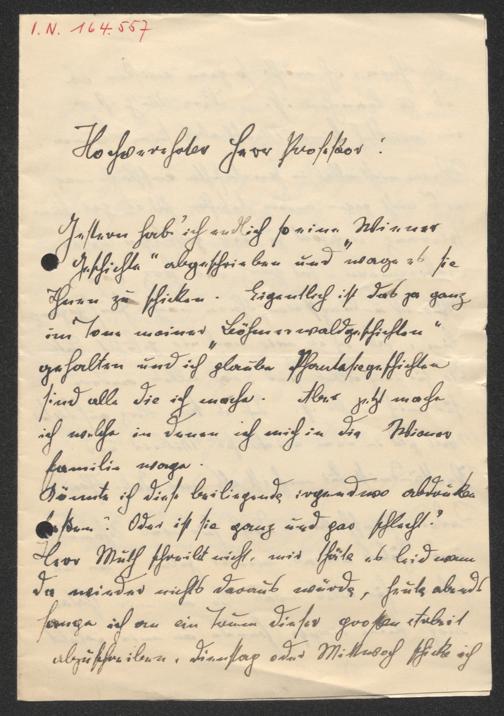 I. N. 164.557
Hochverehrter Herr Professor!
Gestern hab' ich endlich so eine Wiener
Geschichte" abgeschrieben und wage es sie
Ihnen zu schicken. Eigentlich ist das ja ganz
im Tone meiner „Böhmerwaldgeschichten"
gehalten und ich glaube Phantasiegeschichten
sind alle die ich mache. Aber jetzt mache
ich welche in denen ich mich in die Wiener
Familie wage.
Könnte ich diese beiliegende irgendwo abdrucken
lassen? Oder ist sie ganz und gar schlecht?
Herr Muth schreibt nicht, mir thäte es leid wenn
da wieder nichts daraus würde, heute abends
fange ich an ein dieser großen Arbeit
abzuschreiben, Dienstag oder Mittwoch schicke ich